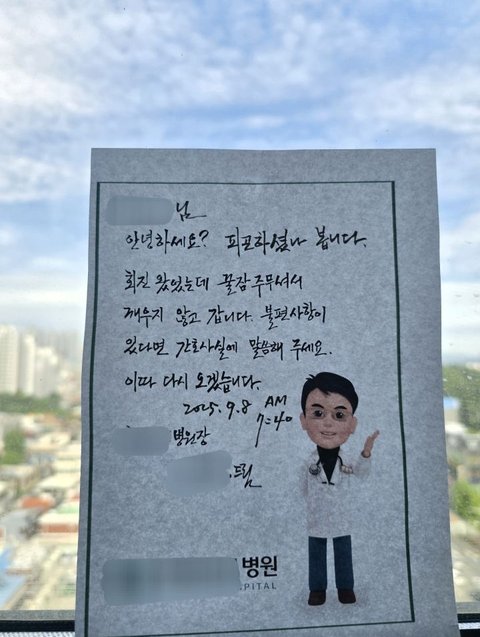 님
안녕하세요? 피곤하셨나 봅니다.
회진 왔었는데 꿀잠 주무셔서
깨우지 않고 갑니다. 불편사항이
있다면 간호사실에 말씀해 주세요.
이따 다시 오겠습니다.
2025.9.8 AM 7:40
병원장
드림
병원
PITAL